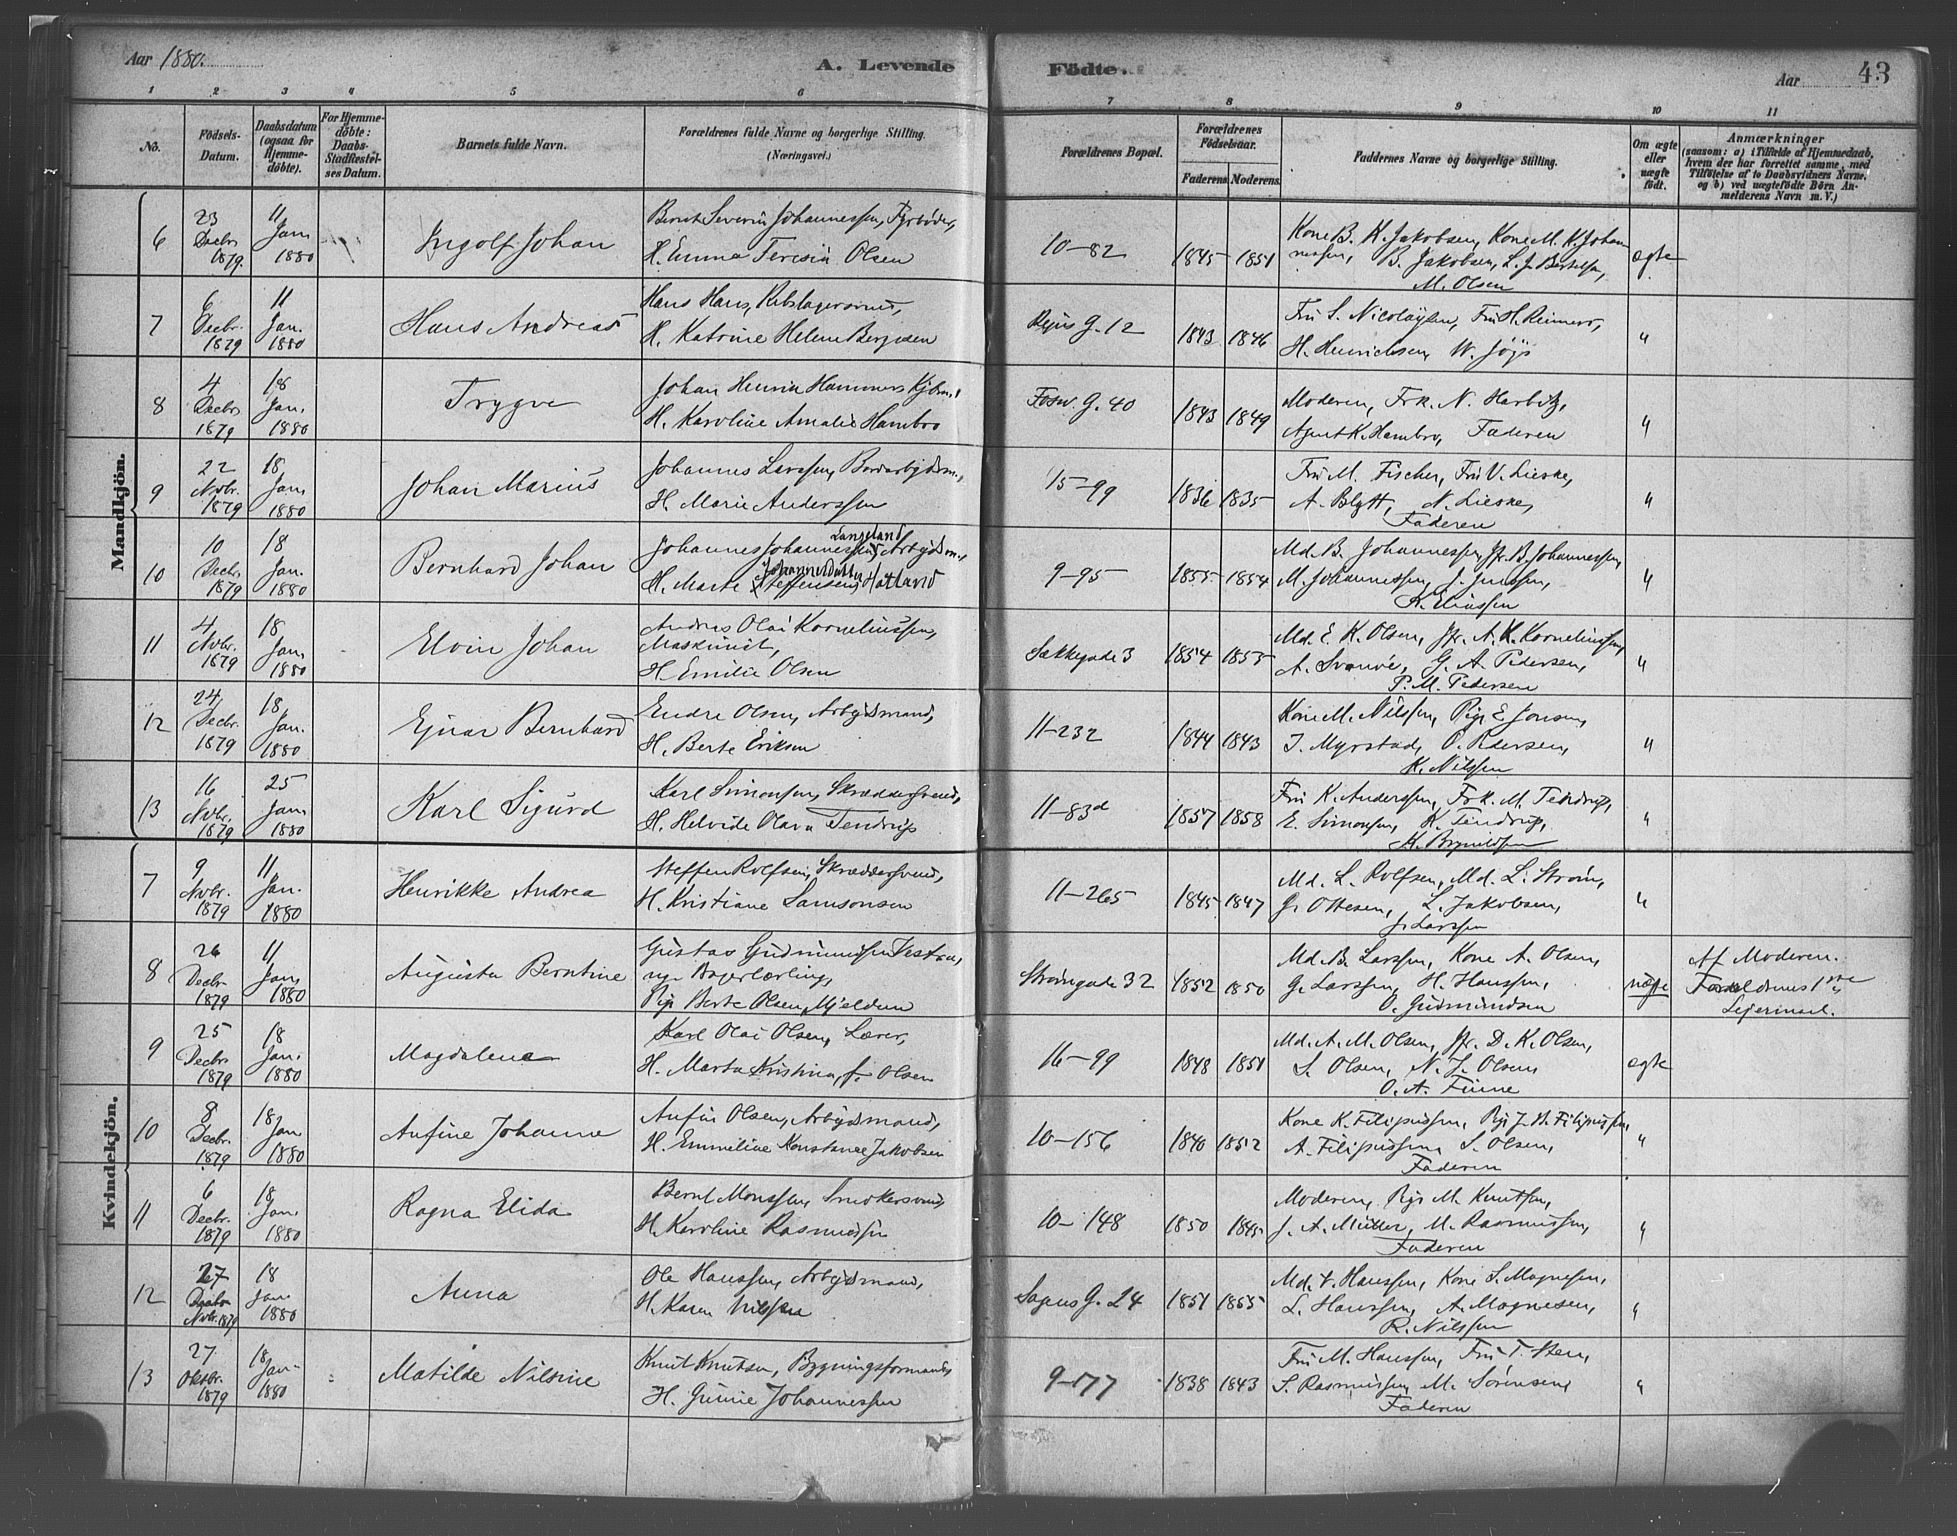 Aar 1880. A. Levende Födte. Aar 43
1 2 3 4 5 6 7 8 9 10 11
No. Födsels-Datum. Daabsdatum (ogsaa for Hjemmedöbte). For Hjemmedöbte: Daabs-Stadfæstelses Datum. Barnets fulde Navn. Forældrenes fulde Navne og borgerlige Stilling. (Næringsvei.) Forældrenes Bopæl. Forældrenes Födselsaar. Faderens. Moderens. Faddernes Navne og borgerlige Stilling. Om ægte eller uægte födt. Anmærkninger (saasom: a) i Tilfælde af Hjemmedaab, hvem der har forrettet samme, med Tilföielse af to Daabsvidners Navne, og b) ved uægtefödte Börn Anmelderens Navn m. V.)
Mandkjön.
6 23 Decbr. 1879. 11 Jan. 1880 Ingolf Johan Bernt Severin Johannessen, Fyrböder,
H. Emma Teresia Olsen 10-82 1845 1851 Kone B. K. Jakobsen, Kone M. K. Johannessen, B. Jakobsen, L. J. Bertelsen,
M. Olsen ægte
7 6 Decbr. 1879 11 Jan. 1880 Hans Andreas Hans Hans, Rebslagersvend,
H. Katrine Helene Bergesen G. 12 1843 1846 Fru S. Nicolaysen, Fru H. Reimers,
H. Henrichsen, W. "
8 4 Decbr. 1879 18 Jan. 1880 Trygve Johan Henrik Hammers Kjöbm.,
H. Karoline Amalie Hambro Fosw. G. 40 1843 1849 Moderen, Frk. N. Harbitz,
Agent K. Hambro, Faderen "
9 22 Novbr. 1879 18 Jan. 1880 Johan Marius Johannes Larssen, Bordarbejdsm.,
H. Marie Anderssen 15-99 1836 1835 Fru M. Fischer, Fru V. Lieske,
A. Blytt, N. Lieske,
Faderen "
10 10 Decbr. 1879 18 Jan. 1880 Bernhard Johan Johannes Johannessen Langeland Arbejdsm.,
H. Marte Steffensen Johannesdatter Hatland 9-95 1855 1854 Md. B. Johannessen, Jfr. B. Johannessen,
M. Johannessen, J. Jenssen,
K. Eliassen "
11 4 Novbr. 1879 18 Jan. 1880 Elvin Johan Andreas Olai Korneliussen,
Maskinist,
H. Emilie Olsen Sækkegade 3 1854 1855 Md. E. K. Olsen, Jfr. A. K. Korneliussen,
A. Svanöe, G. A. Pedersen,
P. M. Pedersen "
12 24 Decbr. 1879 18 Jan. 1880 Ejnar Bernhard Endre Olsen, Arbejdsmand,
H. Berte Eriksen 11-232 1844 1843 Kone M. Nilssen, Pige E. Jonsen,
J. Myrstad, O. Pedersen,
K. Nilssen "
13 16 Novbr. 1879 25 Jan. 1880 Karl Sigurd Karl Simonsen, Skræddersvend,
H. Helvide Olava Tendrup 11-83d 1857 1858 Fru K. Anderssen, Frk. M. Tendrup,
E. Simonsen, K. Tendrup,
K. Brynildsen "
Kvindekjön.
7 9 Novbr. 1879 11 Jan. 1880 Henrikke Andrea Steffen Rolfsen, Skræddersvend,
H. Kristiane Samsonsen 11-265 1845 1847 Md. L. Rolfsen, Md. L. Ström,
G. Ottesen, L. Jakobsen,
J. Larssen "
8 26 Decbr. 1879 11 Jan. 1880 Augusta Berntine Gustav Gudmundsen
Bagerlærling,
Pige Berte Olsen Mjeldem Strömgade 32 1852 1850 Md. B. Larssen, Kone A. Olsen,
G. Larssen, H. Hanssen,
O. Gudmundsen uægte Af Moderen.
Forældrenes 1ste
Lejermaal.
9 25 Decbr. 1879 18 Jan. 1880 Magdalena Karl Olai Olsen, Lærer,
H. Marta Kristina, f. Olsen 16-99 1848 1851 Md. A. M. Olsen, Jfr. D. K. Olsen,
S. Olsen, N. J. Olsen,
O. A. Finne ægte
10 8 Decbr. 1879 18 Jan 1880 Anfine Johanne Anfin Olsen, Arbejdsmand,
H. Emmeline Konstance Jakobsen 10-156 1840 1852 Kone K. Filipussen, Pige J. N. Filipussen
A. Filipussen, S. Olsen,
Faderen "
11 6 Decbr. 1879 18 Jan. 1880 Ragna Elida Bernt Monssen, Snedkersvend,
H. Karoline Rasmussen 10-148 1850 1845 Moderen, Pige M. Knutsen,
J. A. Müller, M. Rasmussen,
Faderen "
12 27 Novbr. 1879 18 Jan. 1880 Anna Ole Hanssen, Arbejdsmand,
H. Karen Nilssen G. 24 1851 1855 Md. V. Hanssen, Kone S. Magnesen,
L. Hanssen, A. Magnesen,
R. Nilssen "
13 27 Oktbr. 1879 18 Jan. 1880 Matilde Nilsine Knut Knutsen, Bygningsformand,
H. Gunnie Johannessen 9-177 1838 1843 Fru M. Hanssen, Fru T. Steen,
S. Rasmussen, M. Sörensen,
Faderen "